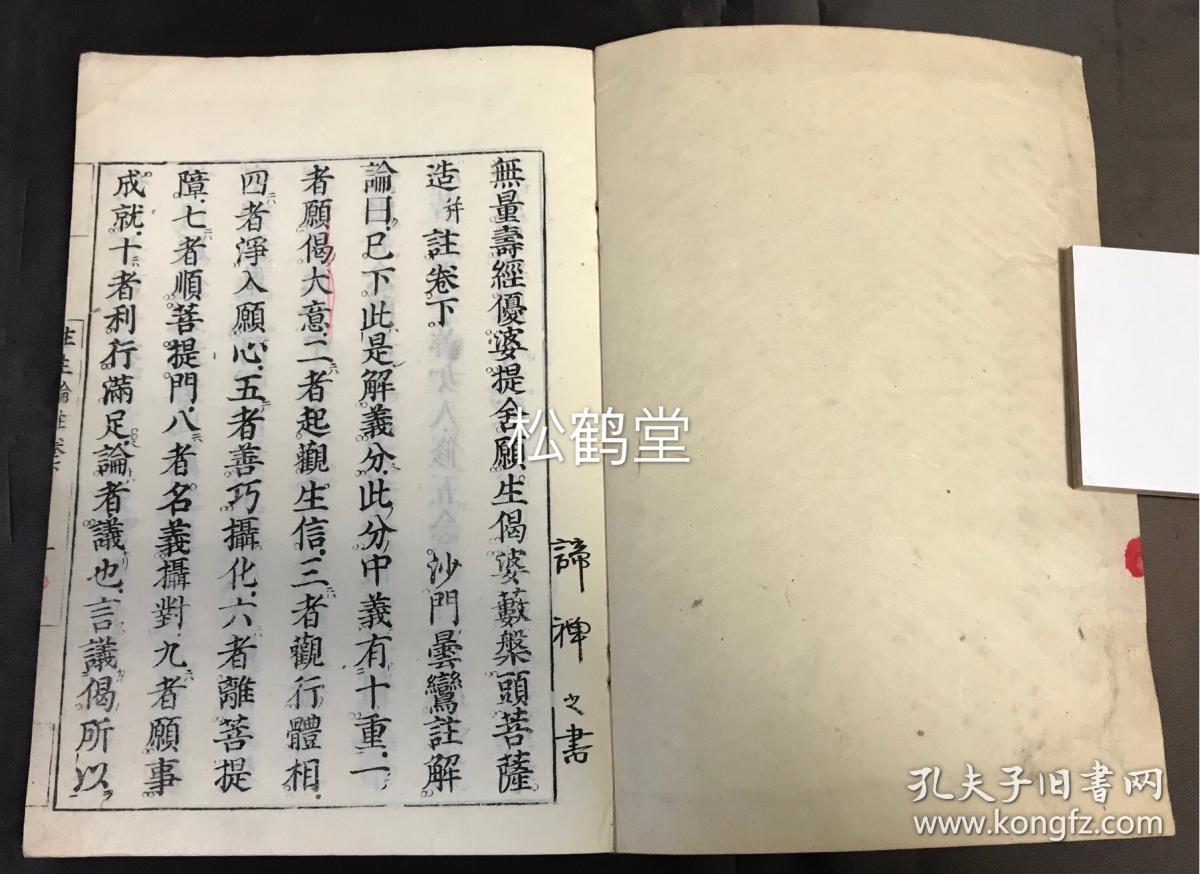 諦禅之書
無量壽經優婆提舍願生偈婆藪槃頭菩薩
造幷註卷下 沙門曇鸞註解
論曰已下此是解義分此分中義有十重一
者願偈大意二者起觀生信三者觀行體相
四者淨入願心五者善巧攝化六者離菩提
障七者順菩提門八者名義攝對九者願事
成就十者利行滿足論者議也言議偈所以
往生論註卷下
松鹤堂
孔夫子旧书网
www.kongfz.com